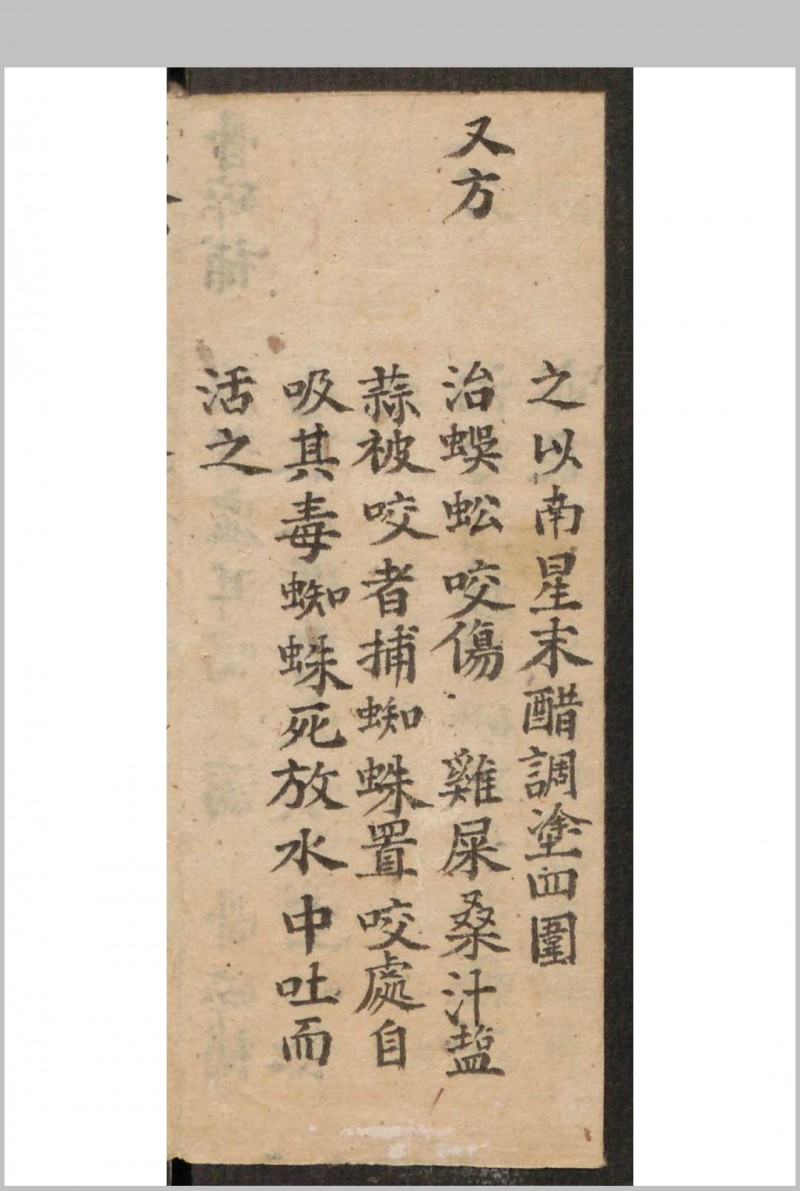 之以南星末醋調塗四圍
又方 治蜈蚣咬傷 雞屎桑汁塩
蒜被咬者捕蜘蛛置咬處自
吸其毒蜘蛛死放水中吐而
活之